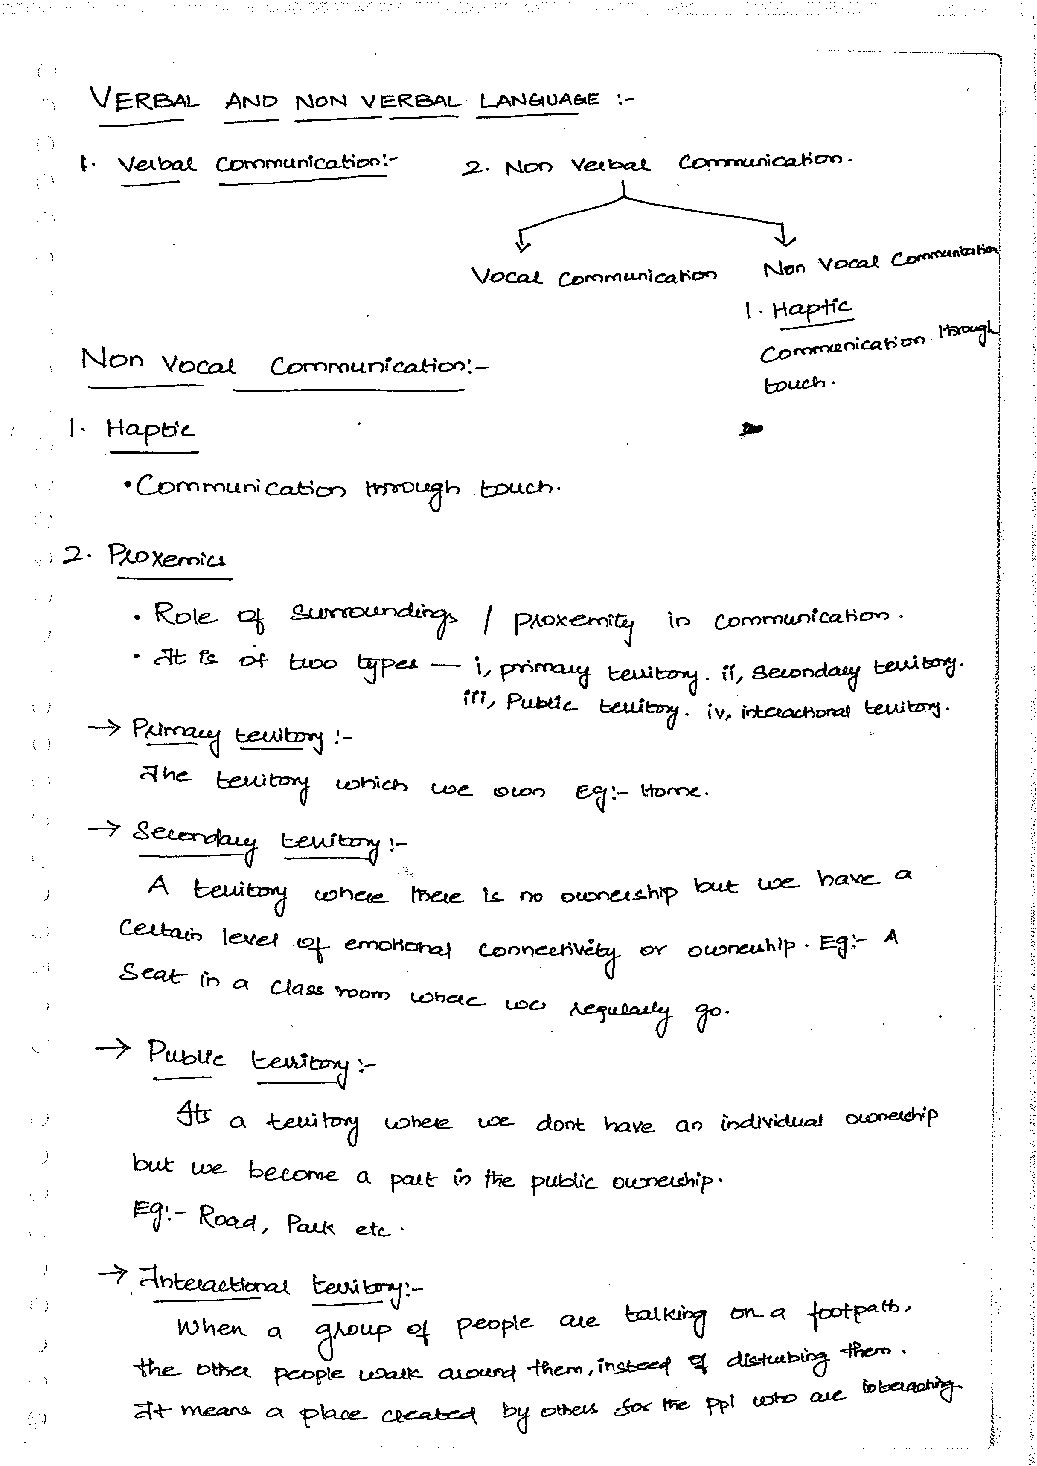 VERBAL AND NON VERBAL LANGUAGE :-
1. Verbal Communication:- 2. Non Verbal Communication.
Vocal Communication Non Vocal Communication
1. Haptic
Communication through
touch.
Non Vocal Communication:-
1. Haptic
• Communication through touch.
2. Proxemics
• Role of Surroundings / proxemity in communication.
• It is of two types — i, primary territory. ii, Secondary territory.
iii, Public territory. iv, interactional territory.
→ Primary territory :-
The territory which we own Eg:- Home.
→ Secondary territory :-
A territory where there is no ownership but we have a
certain level of emotional connectivity or ownership. Eg:- A
Seat in a class room where we regularly go.
→ Public territory :-
Its a territory where we dont have an individual ownership
but we become a part in the public ownership.
Eg:- Road, Park etc.
→ Interactional territory:-
When a group of people are talking on a footpath,
the other people walk around them, instead of disturbing them.
It means a place created by others for the ppl who are interacting.